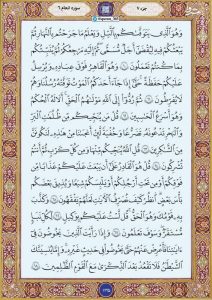 جزء ۷
سوره انعام ۶
وَهُوَ الَّذِى يَتَوَفَّىٰكُم بِالَّيْلِ وَيَعْلَمُ مَا جَرَحْتُم بِالنَّهَارِ ثُمَّ
يَبْعَثُكُمْ فِيهِ لِيُقْضَىٰ أَجَلٌ مُّسَمًّى ثُمَّ إِلَيْهِ مَرْجِعُكُمْ ثُمَّ يُنَبِّئُكُم
بِمَا كُنتُمْ تَعْمَلُونَ ۶۰ وَهُوَ الْقَاهِرُ فَوْقَ عِبَادِهِ وَيُرْسِلُ
عَلَيْكُمْ حَفَظَةً حَتَّىٰ إِذَا جَاءَ أَحَدَكُمُ الْمَوْتُ تَوَفَّتْهُ رُسُلُنَا وَهُمْ
لَا يُفَرِّطُونَ ۶۱ ثُمَّ رُدُّوا إِلَى اللَّهِ مَوْلَىٰهُمُ الْحَقِّ أَلَا لَهُ الْحُكْمُ
وَهُوَ أَسْرَعُ الْحَٰسِبِينَ ۶۲ قُلْ مَن يُنَجِّيكُم مِّن ظُلُمَٰتِ الْبَرِّ
وَالْبَحْرِ تَدْعُونَهُ تَضَرُّعًا وَخُفْيَةً لَّئِنْ أَنجَىٰنَا مِنْ هَٰذِهِ لَنَكُونَنَّ
مِنَ الشَّٰكِرِينَ ۶۳ قُلِ اللَّهُ يُنَجِّيكُم مِّنْهَا وَمِن كُلِّ كَرْبٍ ثُمَّ أَنتُمْ
تُشْرِكُونَ ۶۴ قُلْ هُوَ الْقَادِرُ عَلَىٰ أَن يَبْعَثَ عَلَيْكُمْ عَذَابًا مِّن
فَوْقِكُمْ أَوْ مِن تَحْتِ أَرْجُلِكُمْ أَوْ يَلْبِسَكُمْ شِيَعًا وَيُذِيقَ بَعْضَكُم
بَأْسَ بَعْضٍ انظُرْ كَيْفَ نُصَرِّفُ الْءَايَٰتِ لَعَلَّهُمْ يَفْقَهُونَ ۶۵ وَكَذَّبَ
بِهِ قَوْمُكَ وَهُوَ الْحَقُّ قُل لَّسْتُ عَلَيْكُم بِوَكِيلٍ ۶۶ لِّكُلِّ نَبَإٍ
مُّسْتَقَرٌّ وَسَوْفَ تَعْلَمُونَ ۶۷ وَإِذَا رَأَيْتَ الَّذِينَ يَخُوضُونَ فِى
ءَايَٰتِنَا فَأَعْرِضْ عَنْهُمْ حَتَّىٰ يَخُوضُوا فِى حَدِيثٍ غَيْرِهِ وَإِمَّا يُنسِيَنَّكَ
الشَّيْطَٰنُ فَلَا تَقْعُدْ بَعْدَ الذِّكْرَىٰ مَعَ الْقَوْمِ الظَّٰلِمِينَ ۶۸
۱۳۵